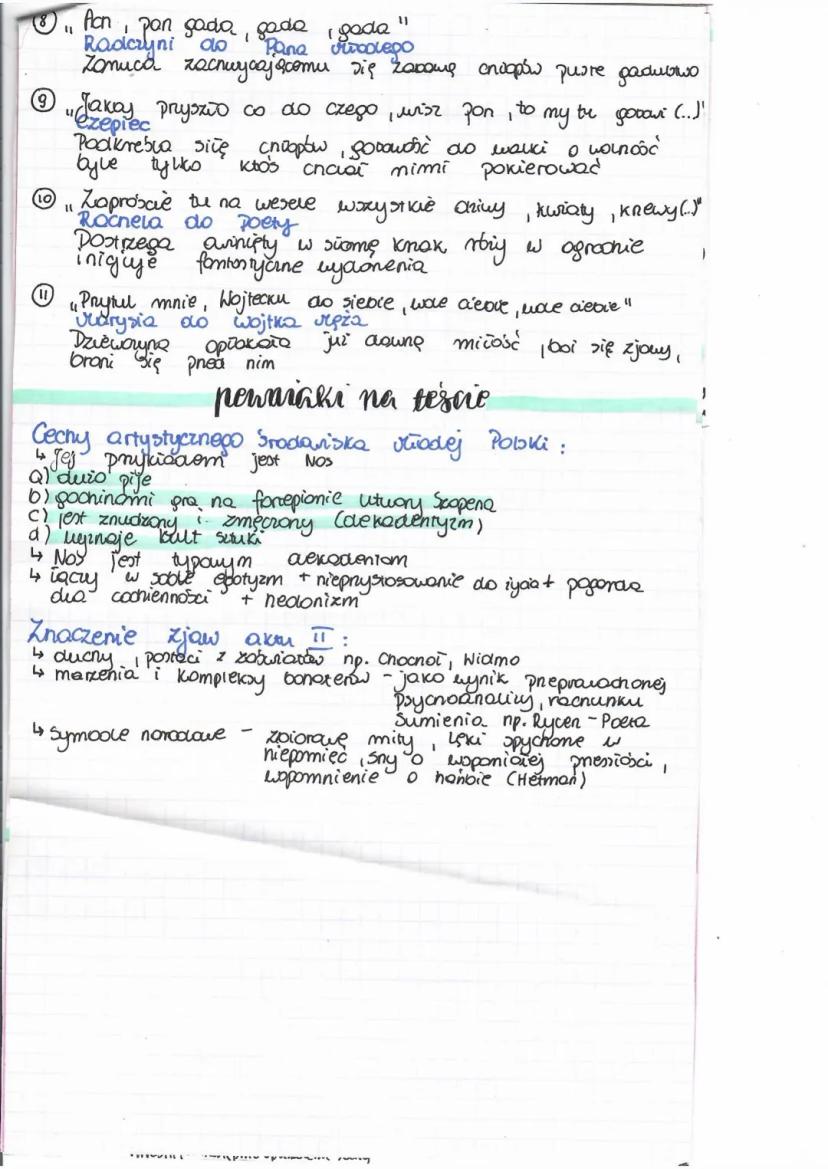 ⑧ „Pan, pan gada, gada, gada"
Radczyni do Pana Młodego
Zarzuca zachwycającemu się zabawą chłopów puste gadulstwo
⑨ „Jakby przyszło co do czego, wisz pon, to my tu gotowi (...)"
Czepiec
Podkreśla siłę chłopów, gotowość do walki o wolność
byle tylko ktoś chciał nimi pokierować
⑩ „Zaproście tu na wesele wszystkie dziwy, kwiaty, krzewy (..)"
Rachela do Poety
Dostrzega owinięty w słomę krzak róży w ogrodzie
inicjuje fantastyczne wydarzenia
⑪ „Przytul mnie, Wojtecku do siebie, wole ciebie, wole ciebie"
Marysia do Wojtka męża
Dziewczyna opłakała już dawną miłość, boi się zjawy,
broni się przed nim
pewniaki na teście
Cechy artystycznego środowiska Młodej Polski:
↳ Jej przykładem jest Nos
a) dużo pije
b) godzinami gra na fortepianie utwory Szopena
c) jest znudzony i zmęczony (dekadentyzm)
d) wyznaje kult sztuki
↳ Nos jest typowym dekadentem
↳ łączy w sobie egotyzm + nieprzystosowanie do życia + pogarda
dla codzienności + hedonizm
Znaczenie zjaw aktu II:
↳ duchy, postaci z zaświatów np. Chochoł, Widmo
↳ marzenia i kompleksy bohaterów - jako wynik przeprowadzonej
psychoanalizy, rachunku
sumienia np. Rycerz - Poeta
↳ symbole narodowe - zbiorowe mity, lęki spychane w
niepamięć, sny o wspaniałej przeszłości,
wspomnienie o hańbie (Hetman)